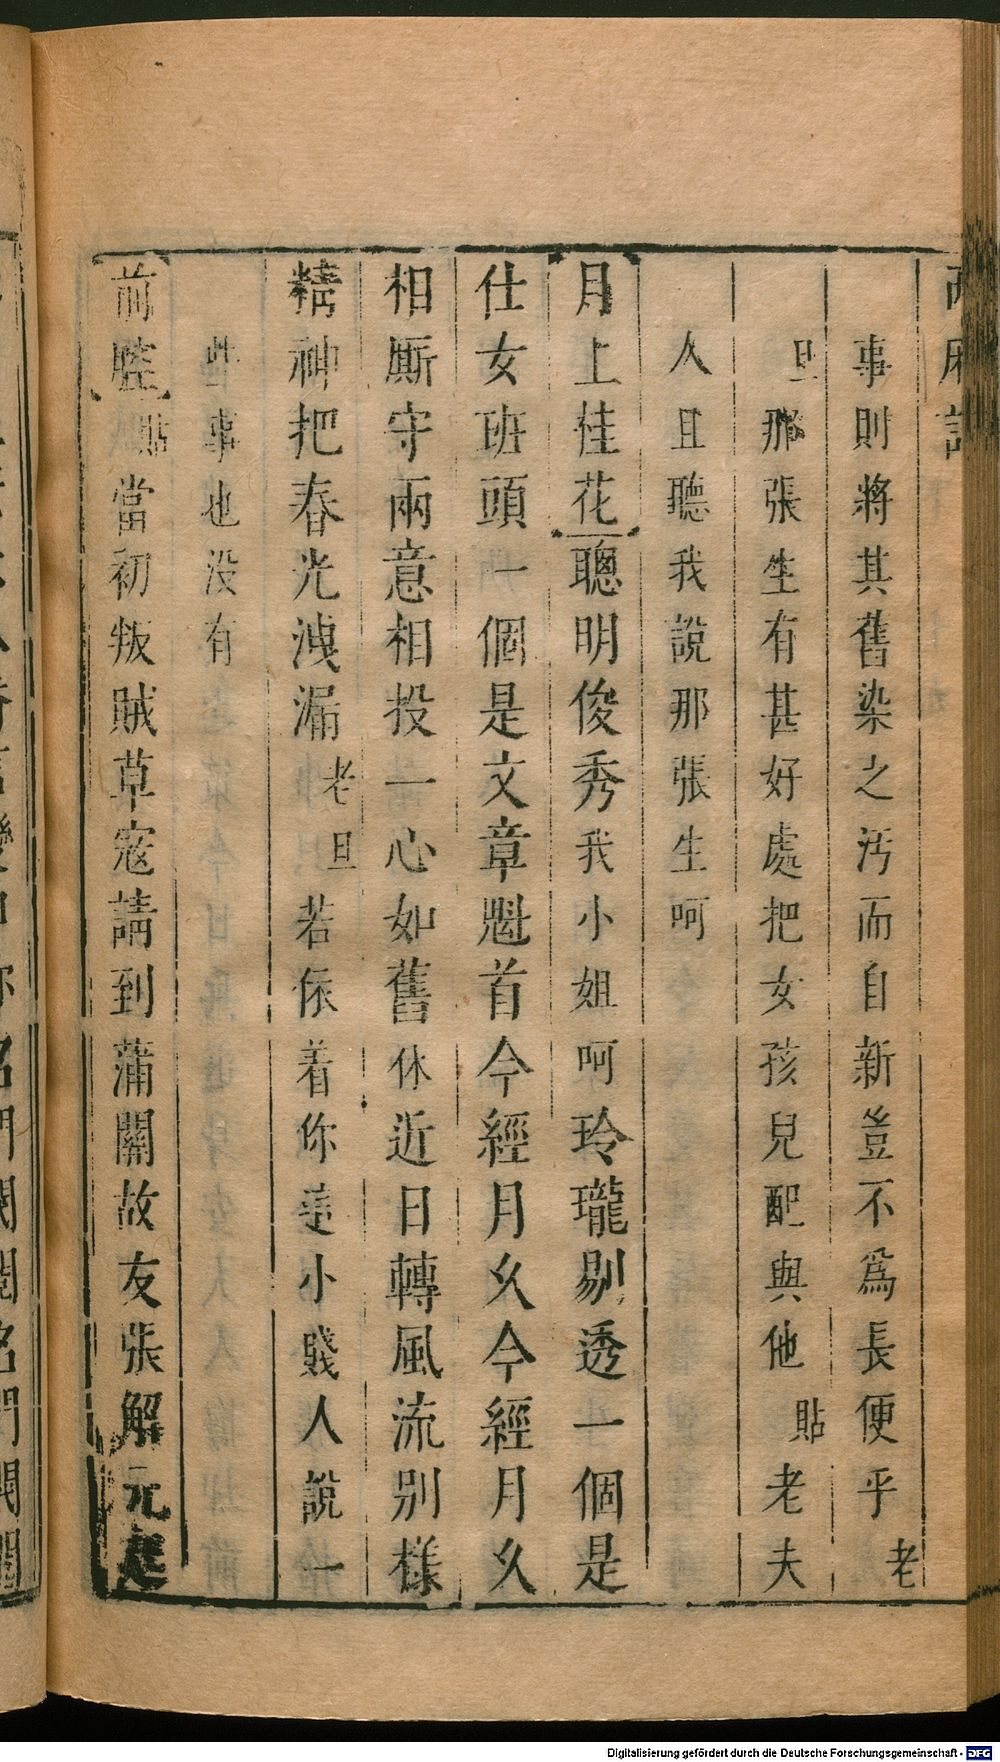 事則將其舊染之汚而自新豈不爲長便乎老
旦那張生有甚好處把女孩兒配與他貼老夫
人且聽我說那張生呵
月上桂花聰明俊秀我小姐呵玲瓏剔透一個是
仕女班頭一個是文章魁首今經月乆今經月乆
相厮守兩意相投一心如舊休近日轉風流别樣
精神把春光洩漏老旦若依着你這小賤人說一
些事也没有
前腔貼當初叛賊草寇請到蒲關故友張解元
Digitalisierung gefördert durch die Deutsche Forschungsgemeinschaft - DFG